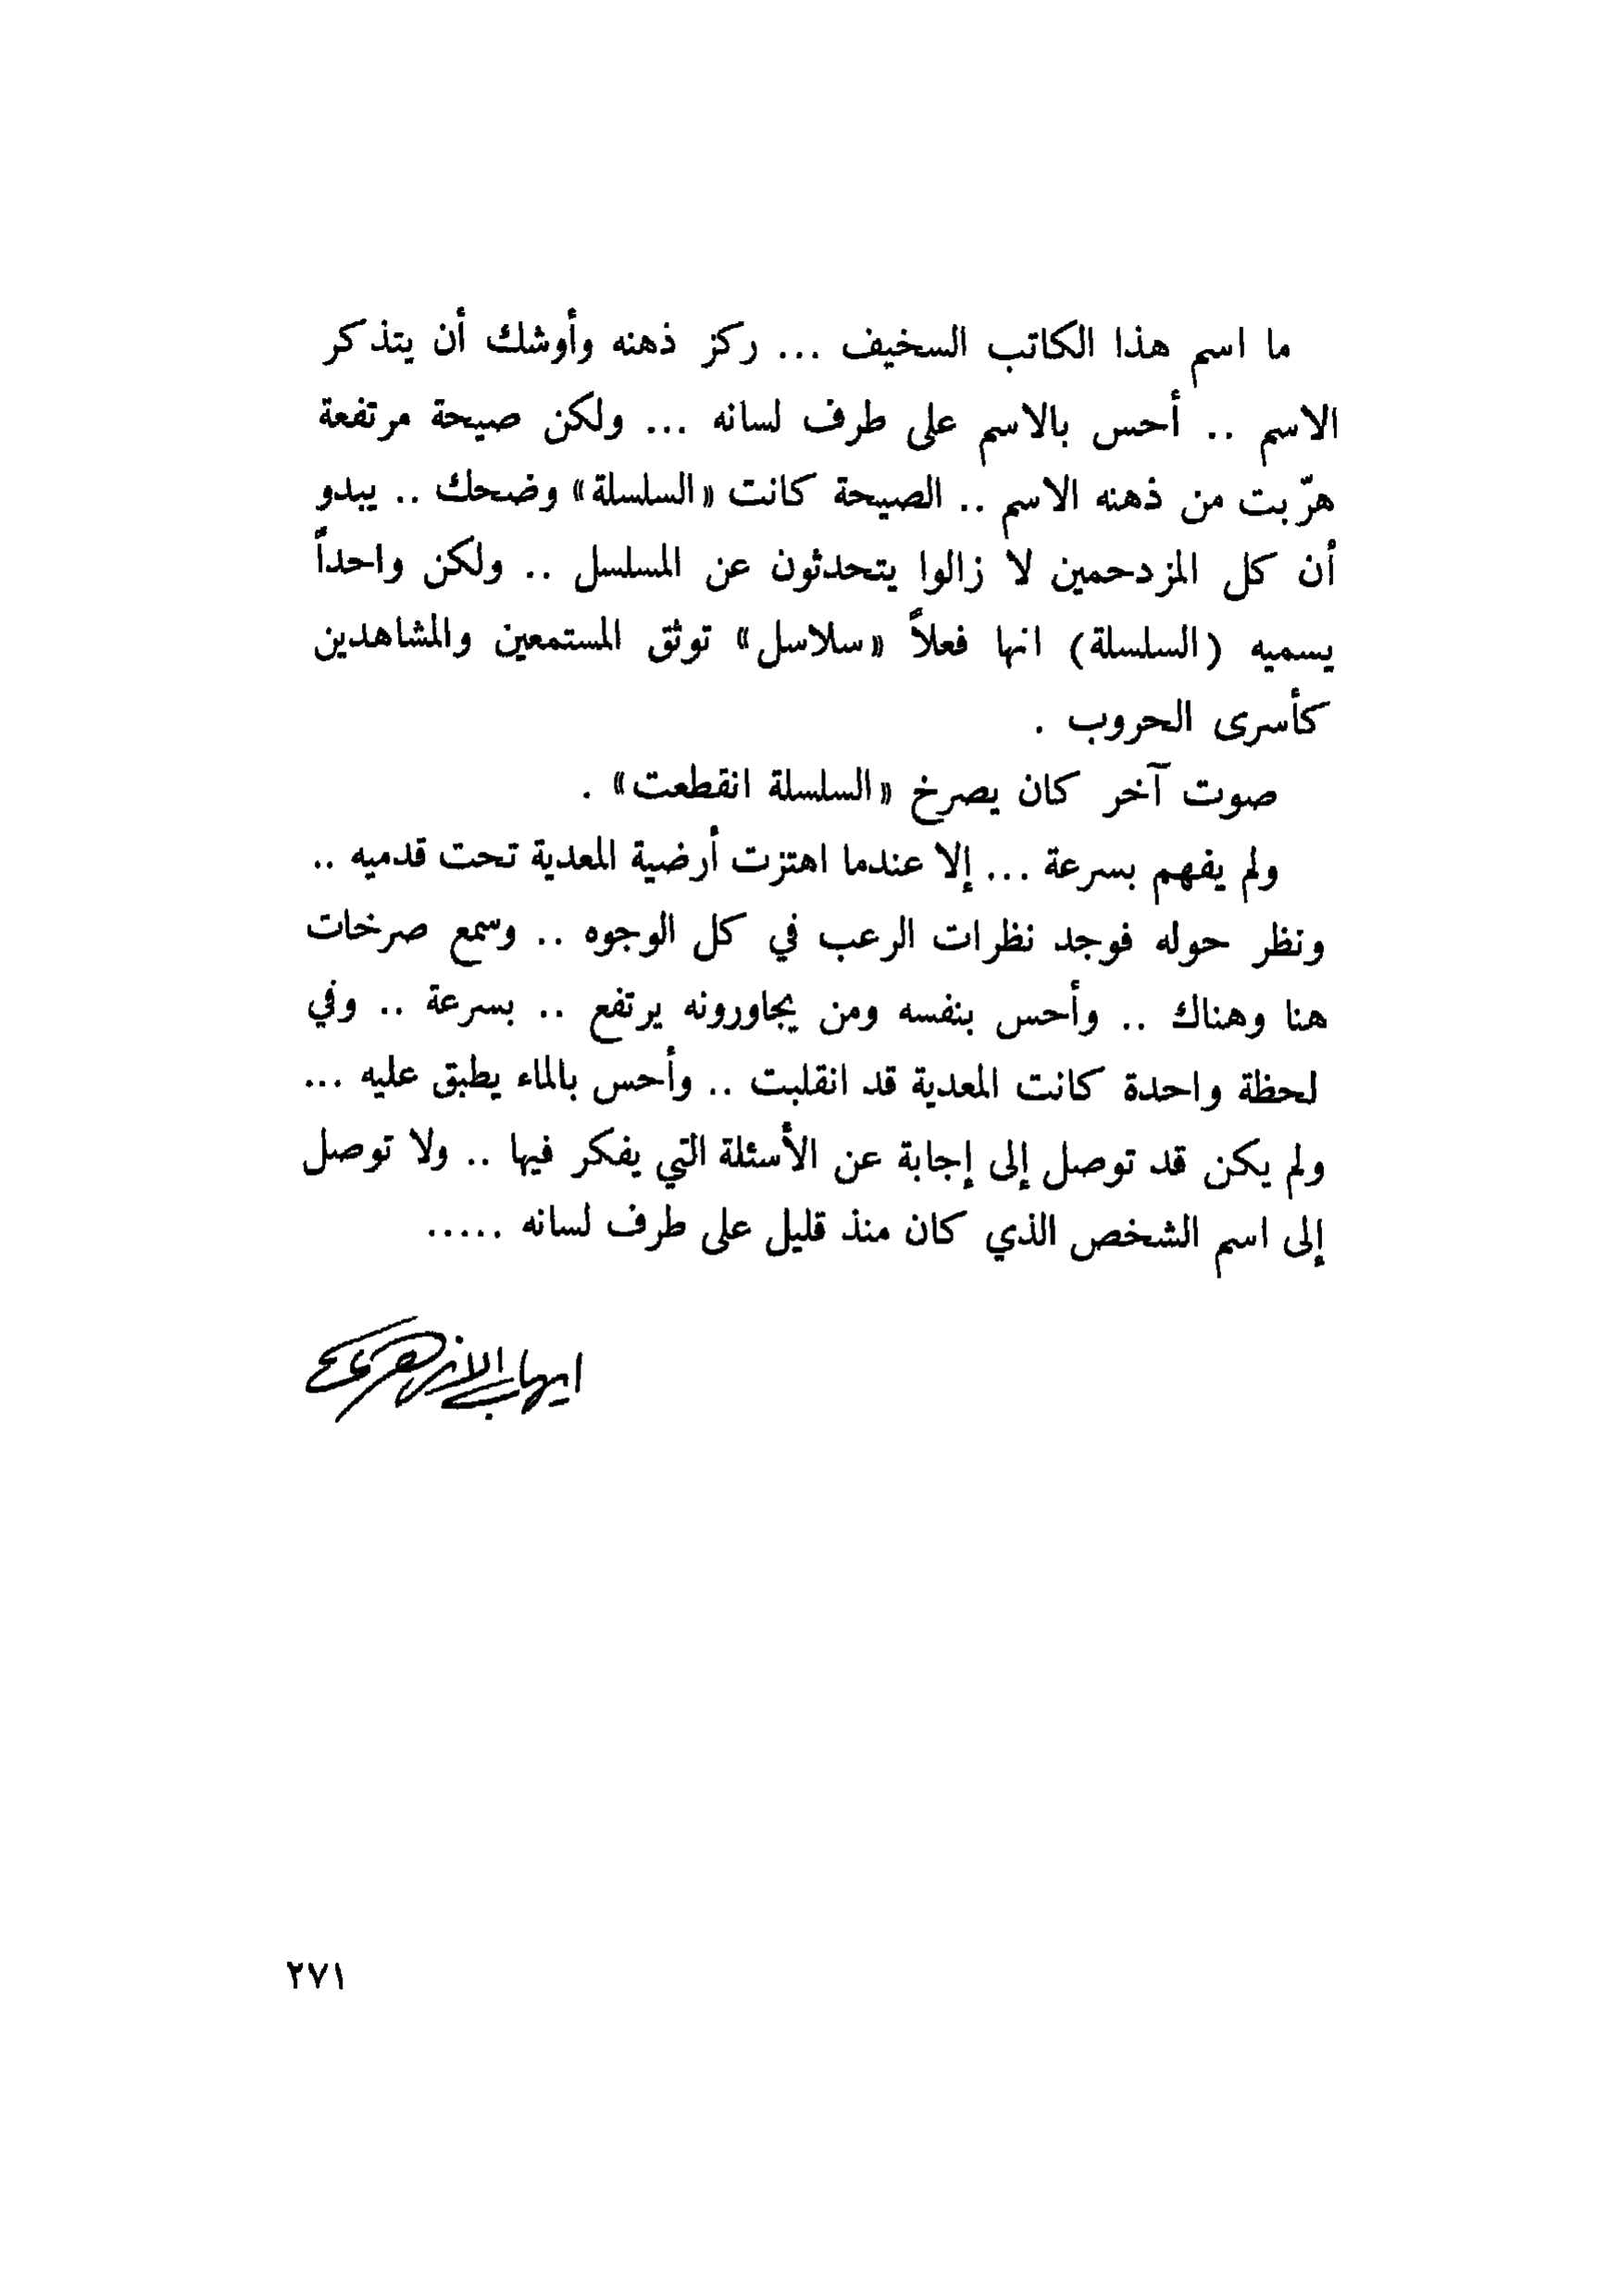 ما اسم هذا الكاتب السخيف ... ركز ذهنه وأوشك أن يتذكر
الاسم .. أحس بالاسم على طرف لسانه ... ولكن صيحة مرتفعة
هرّبت من ذهنه الاسم .. الصيحة كانت «السلسلة» وضحك .. يبدو
أن كل المزدحمين لا زالوا يتحدثون عن المسلسل .. ولكن واحداً
يسميه (السلسلة) انها فعلاً «سلاسل» توثق المستمعين والمشاهدين
كأسرى الحروب .
صوت آخر كان يصرخ «السلسلة انقطعت» .
ولم يفهم بسرعة ... إلا عندما اهتزت أرضية المعدية تحت قدميه ..
ونظر حوله فوجد نظرات الرعب في كل الوجوه .. وسمع صرخات
هنا وهناك .. وأحس بنفسه ومن يجاورونه يرتفع .. بسرعة .. وفي
لحظة واحدة كانت المعدية قد انقلبت .. وأحس بالماء يطبق عليه ...
ولم يكن قد توصل إلى إجابة عن الأسئلة التي يفكر فيها .. ولا توصل
إلى اسم الشخص الذي كان منذ قليل على طرف لسانه .....
ايهاب الازهري
٢٧١